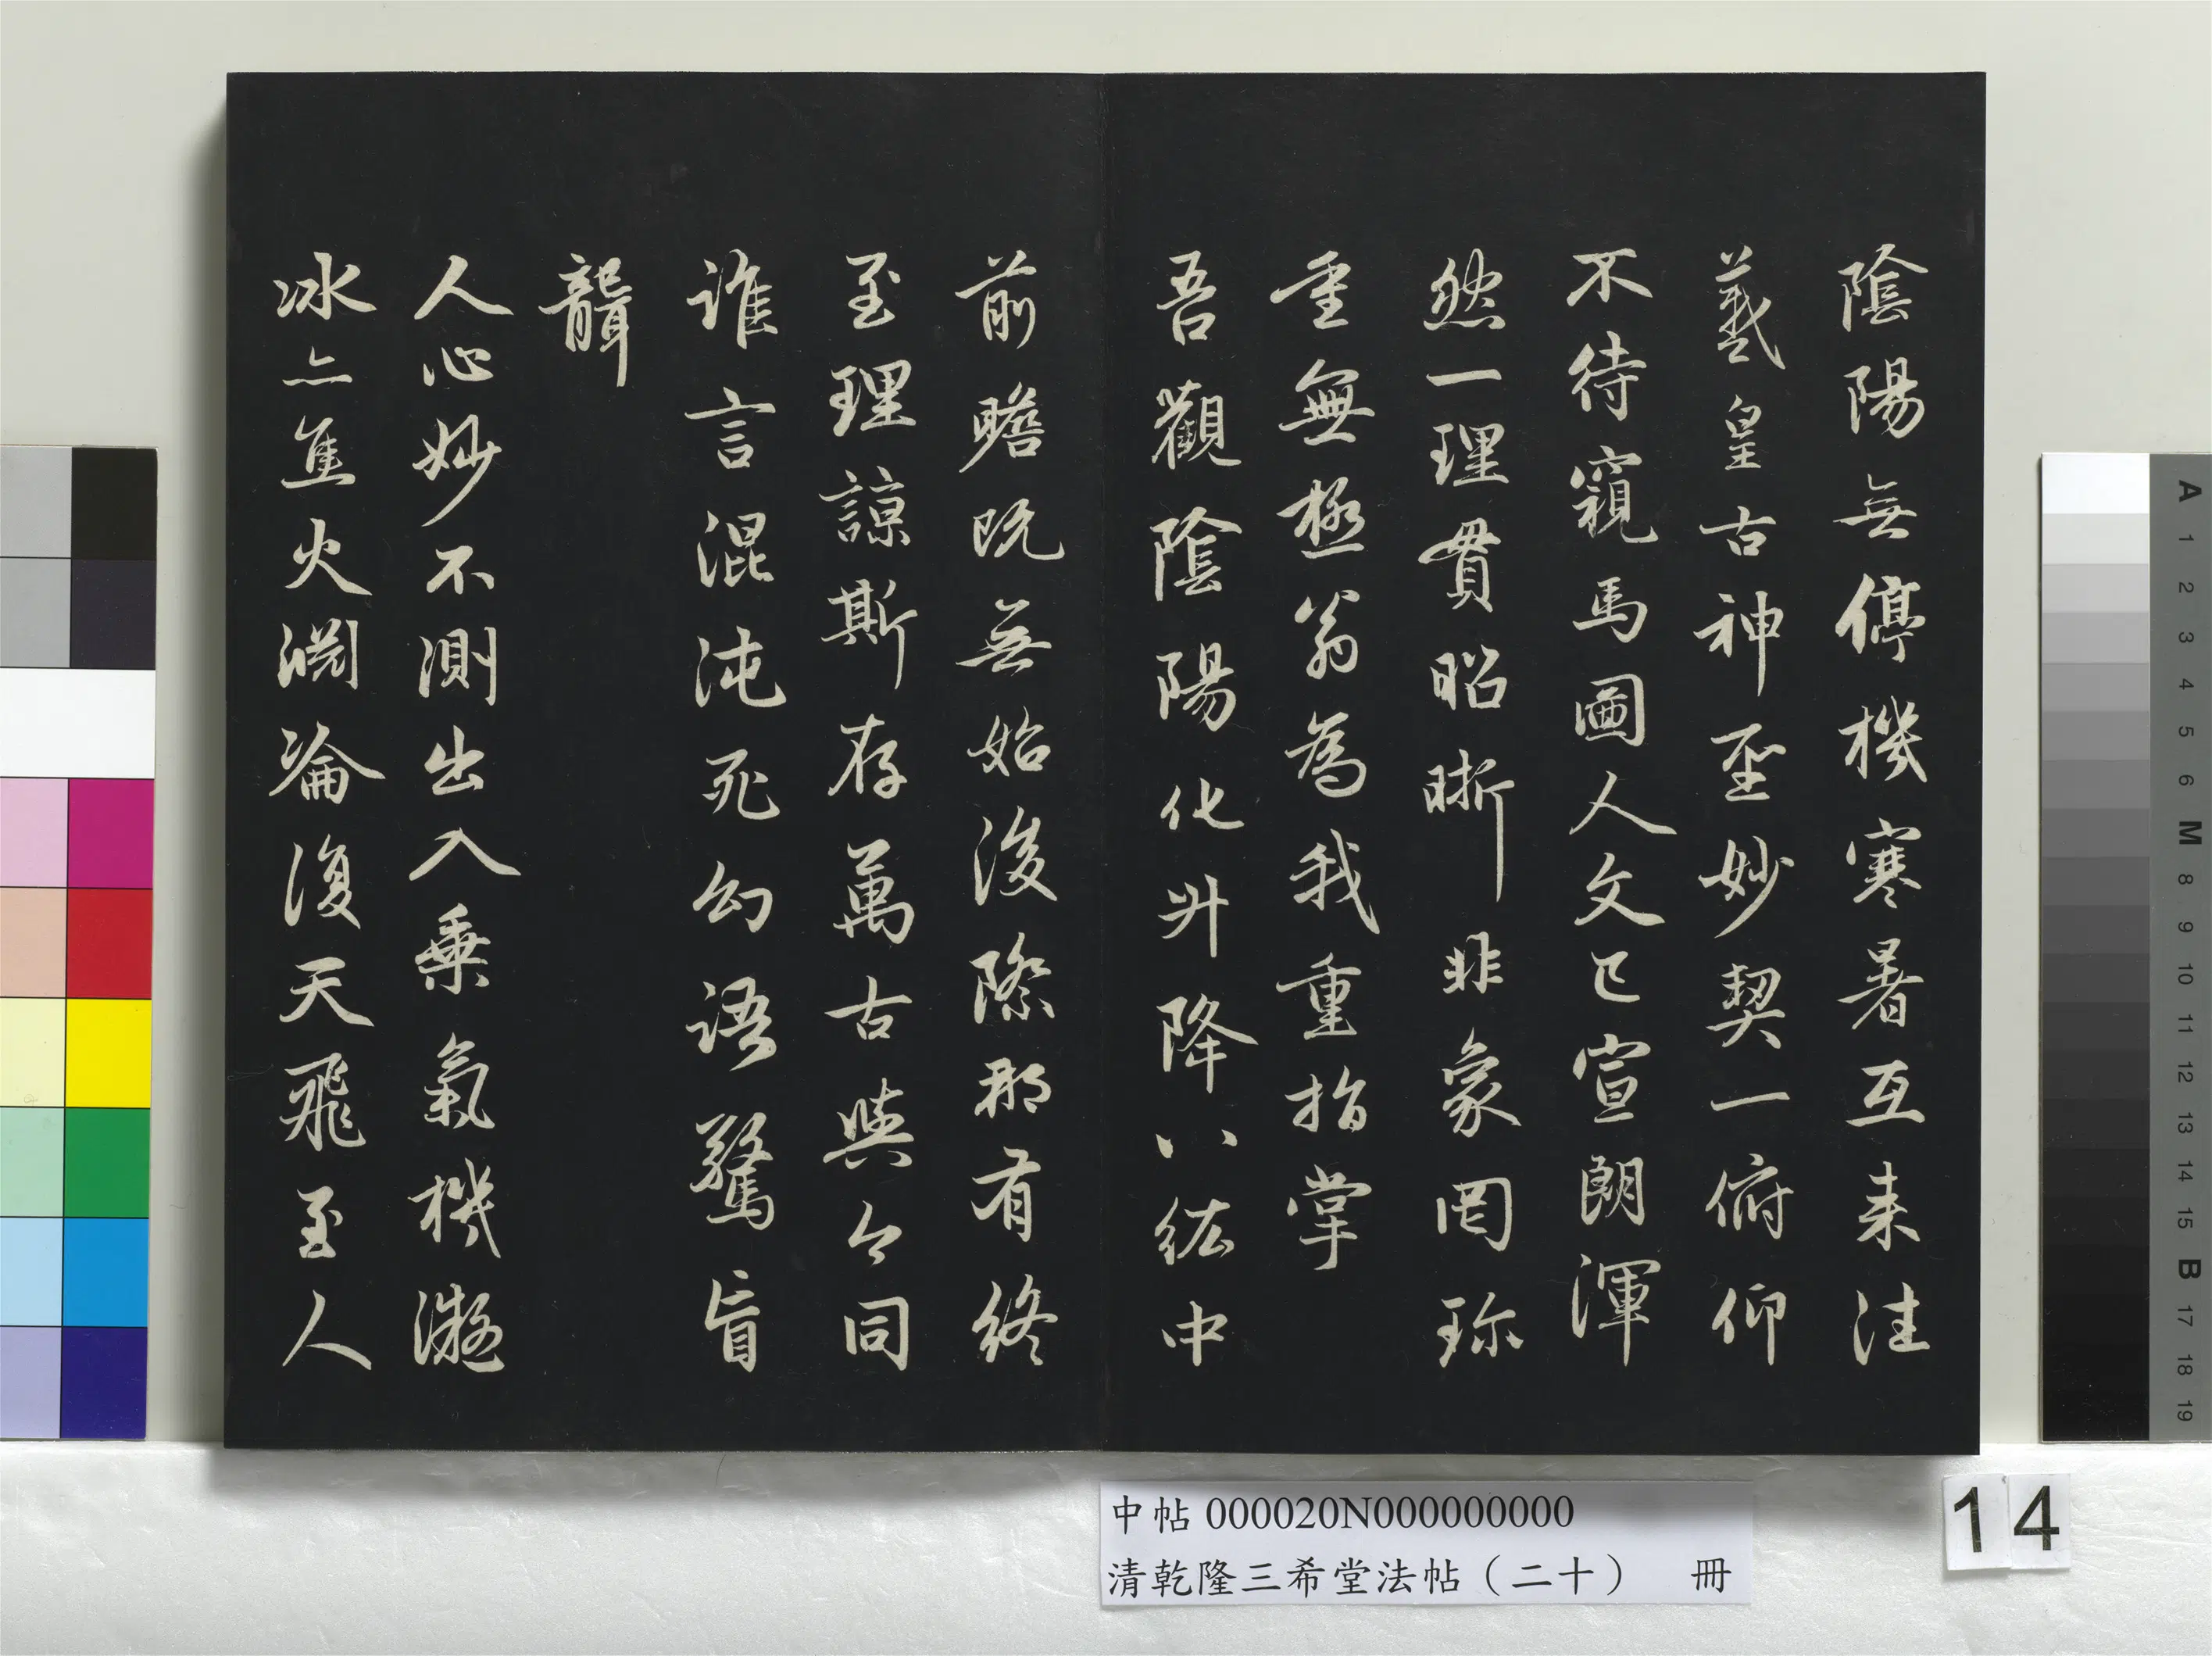 陰陽無停機寒暑互来往
羲皇古神聖妙契一俯仰
不待窺馬圖人文已宣朗渾
然一理貫昭晰非象罔珎
重無極翁為我重指掌
吾觀陰陽化升降八紘中
前瞻既無始後際那有終
至理諒斯存萬古與今同
誰言混沌死幻語驚盲
聾
人心妙不測出入乗氣機凝
冰亦焦火淵淪復天飛至人
中帖 000020N000000000
清乾隆三希堂法帖（二十） 冊
14
A 1 2 3 4 5 6 M 8 9 10 11 12 13 14 15 B 17 18 19